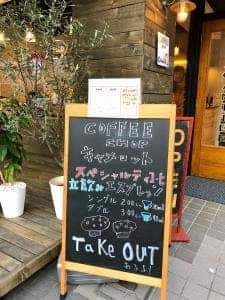 COFFEE
SHOP
キャメロット
スペシャルティと
立呑みエスプレッソ
シングル 200
ダブル 300
Take OUT
あるよ!
OPEN